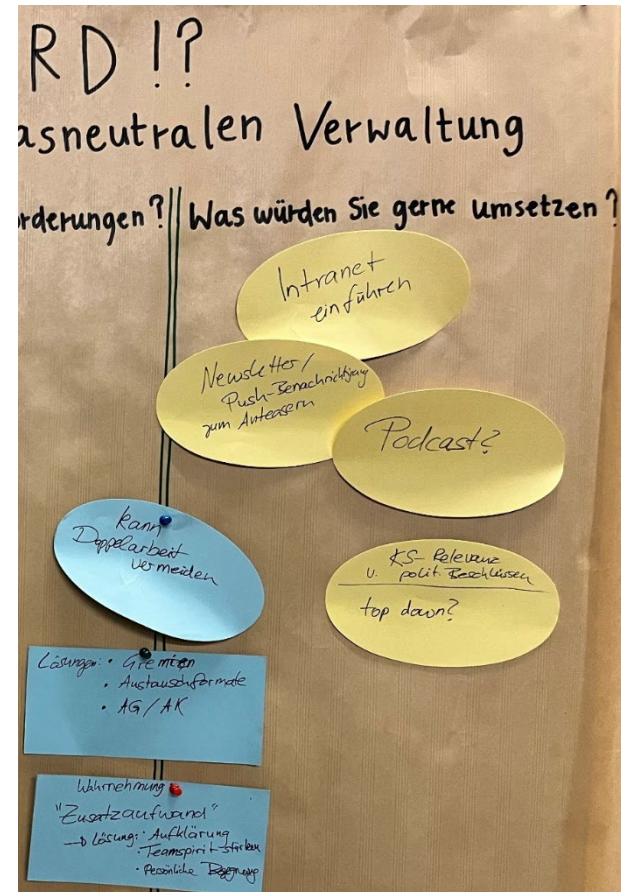 RD !?
asneutralen Verwaltung
rderungen? Was würden Sie gerne umsetzen?
Intranet
einführen
Newsletter/
Push-Benachrichtigung
zum Anteasern
Podcast?
KS-Relevanz
v. polit. Beschlüssen
top down?
kann
Doppelarbeit
vermeiden
Lösungen: • Gremien
• Austauschformate
• AG/AK
Wahrnehmung
"Zusatzaufwand"
→ Lösung: • Aufklärung
• Teamspirit stärken
• Persönliche Begegnung